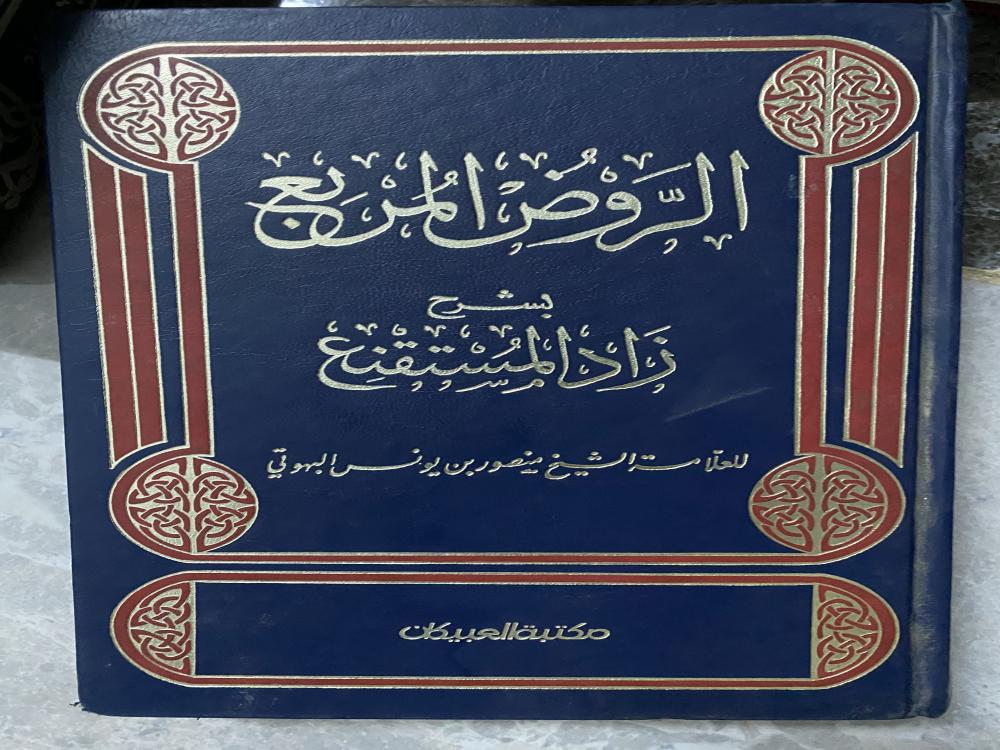 الرَّوضُ المُربِع
بشرح
زَاد المُستَقنِع
للعلّامة الشيخ منصور بن يونس البهوتي
مكتبة العبيكان